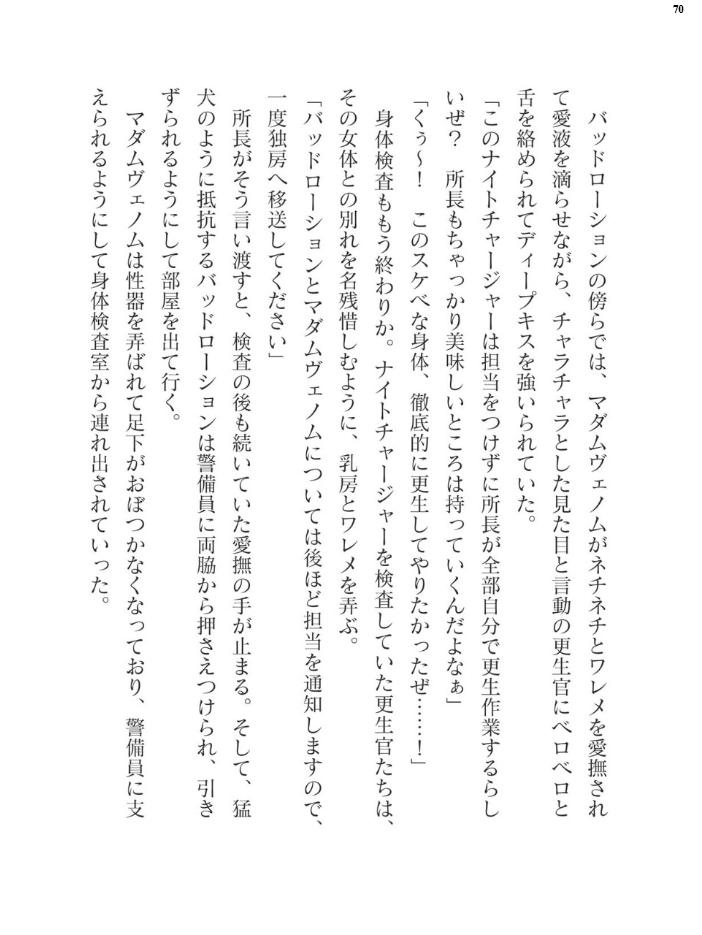 70
バッドローションの傍らでは、マダムヴェノムがネチネチとワレメを愛撫され
て愛液を滴らせながら、チャラチャラとした見た目と言動の更生官にベロベロと
舌を絡められてディープキスを強いられていた。
「このナイトチャージャーは担当をつけずに所長が全部自分で更生作業するらし
いぜ？　所長もちゃっかり美味しいところは持っていくんだよなぁ」
「くぅ～！　このスケベな身体、徹底的に更生してやりたかったぜ……！」
身体検査ももう終わりか。ナイトチャージャーを検査していた更生官たちは、
その女体との別れを名残惜しむように、乳房とワレメを弄ぶ。
「バッドローションとマダムヴェノムについては後ほど担当を通知しますので、
一度独房へ移送してください」
所長がそう言い渡すと、検査の後も続いていた愛撫の手が止まる。そして、猛
犬のように抵抗するバッドローションは警備員に両脇から押さえつけられ、引き
ずられるようにして部屋を出て行く。
マダムヴェノムは性器を弄ばれて足下がおぼつかなくなっており、警備員に支
えられるようにして身体検査室から連れ出されていった。